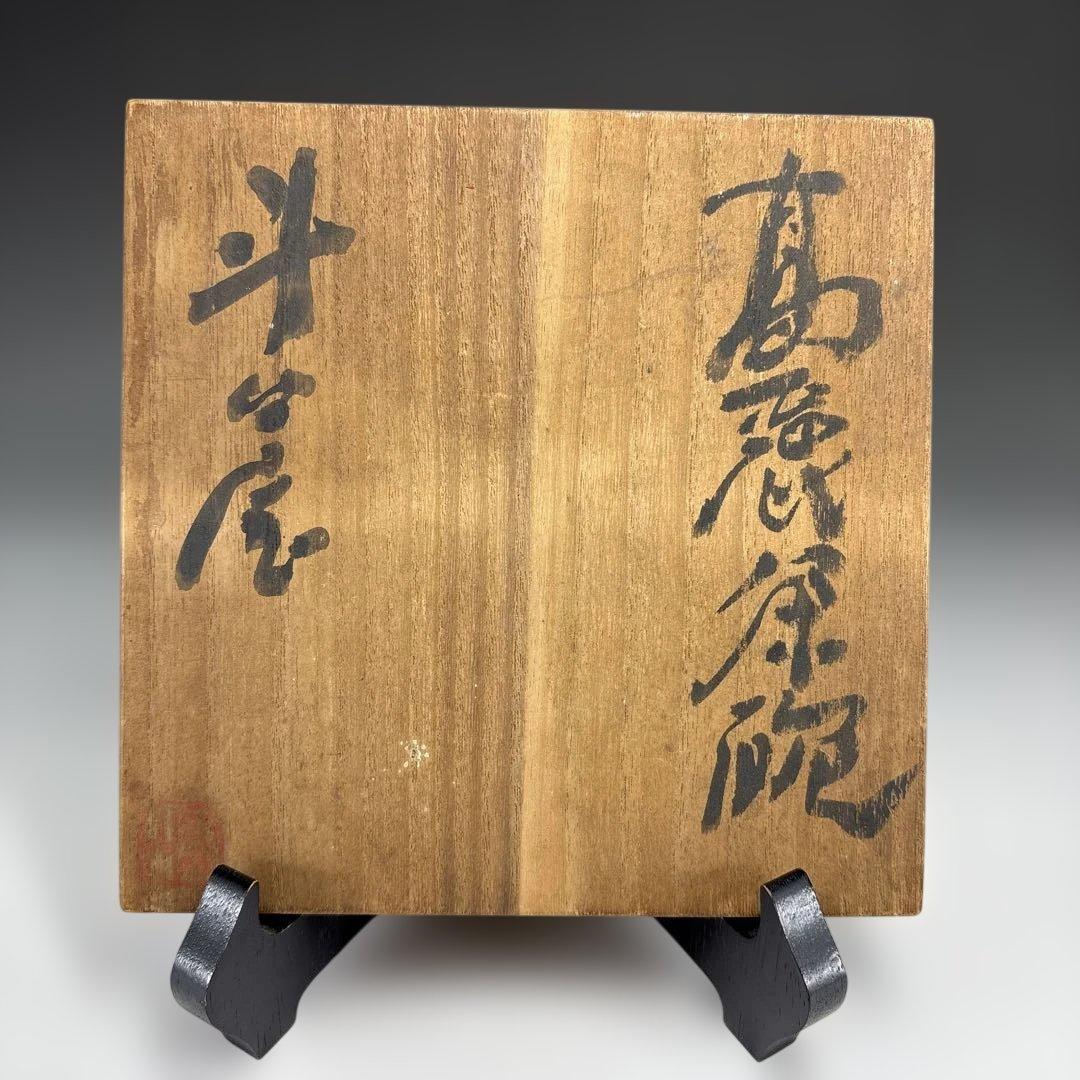 高麗茶碗
斗々屋